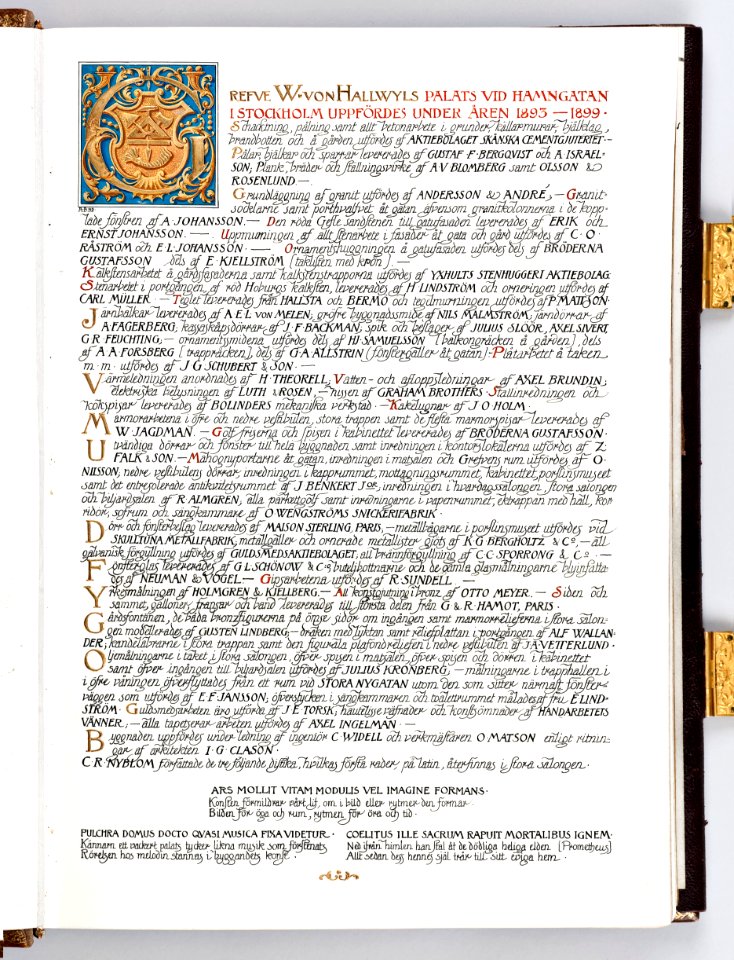 GREFVE W·VON HALLWYLS PALATS VID HAMNGATAN
I STOCKHOLM UPPFÖRDES UNDER ÅREN 1893 — 1899·
Schacktning, pålning samt allt betonarbete i grunder, källarmurar, bjälklag,
brandbotten och å gården utfördes af AKTIEBOLAGET SKÅNSKA CEMENTGJUTERIET·—
Pålar, bjälkar och sparrar levererades af GUSTAF·F·BERGQVIST och A·ISRAEL-
SON; Plank, bräder och ställningsvirke af A V BLOMBERG samt OLSSON &
ROSENLUND·—
Grundläggning af granit utfördes af ANDERSSON & ANDRÉ,— Granit-
socklarne samt porthvalfvet åt gatan, äfvensom granitkolonnerna i de kopp-
lade fönstren af A·JOHANSSON·— Den röda Gefle sandstenen till gatufasaden levererades af ERIK och
ERNST JOHANSSON·— Uppmurningen af allt stenarbete i fasader åt gata och gård utfördes af C·O·
RÅSTRÖM och E·L·JOHANSSON·— Ornamentshuggningen å gatufasaden utfördes dels af BRÖDERNA
GUSTAFSSON dels af E·KJELLSTRÖM (taklisten med krön)·—
Kalkstensarbetet å gårdsfasaderna samt kalkstenstrapporna utfördes af YXHULTS STENHUGGERI AKTIEBOLAG·
Stenarbetet i portgången, af röd Hoburgs kalksten, levererades af H LINDSTRÖM och orneringen utfördes af
CARL MÜLLER·— Teglet levererades från HALLSTA och BERMO och tegelmurningen utfördes af P·MATTSON·
Järnbalkar levererades af A E L von MELEN; gröfre byggnadssmide af NILS MALMSTRÖM, järndörrar af
A·FAGERBERG, kassaskåpsdörrar af J·F·BACKMAN, spik och beslager af JULIUS SLÖÖR, AXEL SIVERT,
G·R·FEUCHTING;— ornamentsmidena utfördes dels af HJ·SAMUELSSON (balkongräcken å gården), dels
af A·A·FORSBERG (trappräcken), dels af G·A·ALLSTRIN (fönstergaller åt gatan)·—Plåtarbetet å taken
m·m· utfördes af J G SCHUBERT & SON·—
Värmeledningen anordnades af H·THEORELL; Vatten- och afloppsledningar af AXEL BRUNDIN;
elektriska belysningen af LUTH & ROSEN,—hissen af GRAHAM BROTHERS·Stallinredningen och
kökspisar levererades af BOLINDERS mekaniska verkstad·— Kakelugnar af J O HOLM·
Marmorarbetena i öfre och nedre vestibulen, stora trappan samt de flesta marmorspisar levererades af
W·JAGDMAN·— Golf, friserna och spisen i kabinettet levererades af BRÖDERNA GUSTAFSSON·
Utvändiga dörrar och fönster till hela byggnaden samt inredningen i kontorslokalerna utfördes af Z·
FALK & SON·—Mahognyportarne åt gatan, inredningen i matsalen och Grefvens rum utfördes af O·
NILSSON, nedre vestibulens dörrar, inredningen i kapprummet, mottagningsrummet, kabinettet, porslinsmuseet
samt det entresolerade antikvitetsrummet af J·BENKERT J:OR, inredningen i hvardagssalongen, stora salongen
och biljardsalen af R·ALMGREN, alla parkettgolf samt inredningarne i vapenrummet, ektrappan med hall, kor-
ridor, sofrum och sängkammare af O WENGSTRÖMS SNICKERIFABRIK·
Dörr och fönsterbeslag levererades af MAISON STERLING, PARIS,—metallbågarne i porslinsmuseet utfördes vid
SKULTUNA METALLFABRIK, metallgaller och ornerade metallister gjöts af K·G·BERGHOLTZ & Co,— all
galvanisk förgyllning utfördes af GULDSMEDSAKTIEBOLAGET, all brännförgyllning af C·C·SPORRONG & Co·—
Fönsterglas levererades af G·L·SCHÖNOW & Co; buteljbottnarne och de gamla glasmålningarne blyinfatta-
des af NEUMAN & VOGEL·— Gipsarbetena utfördes af R·SUNDELL·—
Yrkesmålningen af HOLMGREN & KJELLBERG·— All konstgjutning i bronz af OTTO MEYER·— Siden och
sammet, galloner, fransar och band levererades till största delen från G & R·HAMOT, PARIS·
Gårdsfontänen, de båda bronzfigurerna på ömse sidor om ingången samt marmorrelieferna i stora salon-
gen modellerades af GUSTEN LINDBERG;—draken med lyktan samt reliefplattan i portgången af ALF WALLAN-
DER; kandelabrarne i stora trappan samt den figurala plafondreliefen i nedre vestibulen af J·A·VETTERLUND·
Oljemålningarne i taket i stora salongen, öfver spisen i matsalen, öfver spisen och dörren i kabinettet
samt öfver ingången till biljardsalen utfördes af JULIUS KRONBERG,— målningarne i trapphallen i
öfre våningen öfverflyttades från ett rum vid STORA NYGATAN utom den som sitter närmast fönster-
väggen som utfördes af E·F·JANSSON; öfverstycken i sängkammaren och toilettrummet målades af fru E·LIND-
STRÖM· Guldsmedsarbeten äro utförda af J·E·TORSK, hautelisse väfnader och konstsömnader af HANDARBETETS
VÄNNER,—alla tapetserar arbeten utfördes af AXEL INGELMAN·—
Byggnaden uppfördes under ledning af ingeniör C·WIDELL och verkmästaren O·MATSON enligt ritnin-
gar af arkitekten I·G·CLASON·
C·R·NYBLOM författade de tre följande dystika, hvilkas första rader, på latin, återfinnas i stora salongen·
ARS MOLLIT VITAM MODULIS VEL IMAGINE FORMANS·
Konsten förmildrar vårt lif, om i bild eller rytmer den formar
Bilden för öga och rum, rytmen för öra och tid·
PULCHRA DOMUS DOCTO QVASI MUSICA FIXA VIDETUR·
Kännarn ett vackert palats tycker likna musik som förstenats
Rörelsen hos melodin stannas i byggandets konst·
COELITUS ILLE SACRUM RAPUIT MORTALIBUS IGNEM·
Ned ifrån himlen han stal åt de dödliga heliga elden (Prometheus)
Allt sedan dess hennes själ trår till sitt eviga hem·